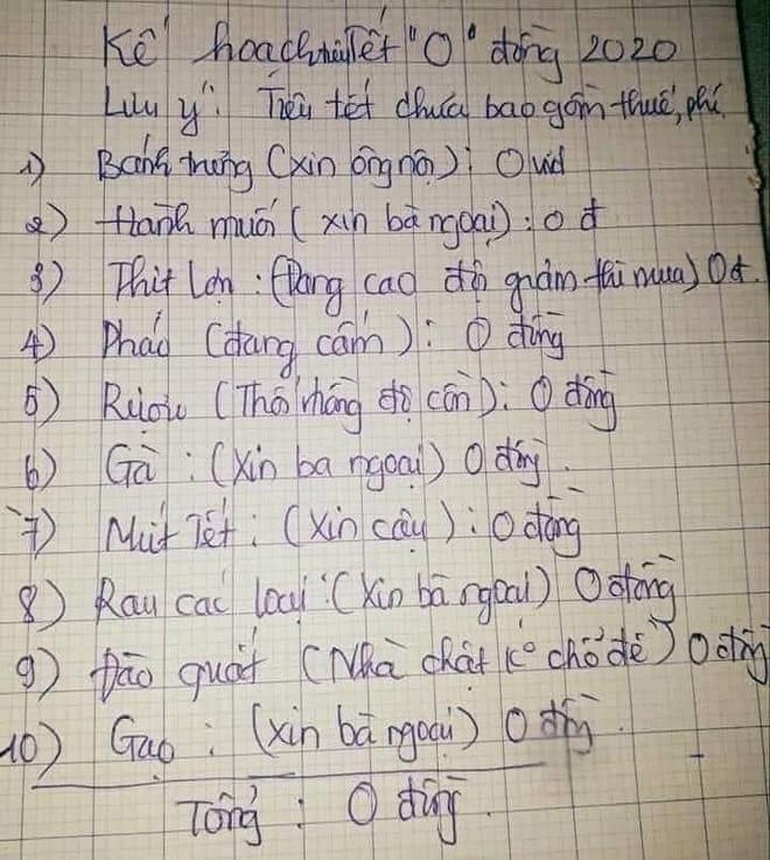 Kế hoạch tiêu Tết "0" đồng 2020
Lưu ý: Tiêu tết chưa bao gồm thuế, phí
1) Bánh trưng (xin ông nội): 0 vnđ
2) Hành muối (xin bà ngoại): 0 đ
3) Thịt lợn: (Đang cao đợi giảm thì mua) 0đ.
4) Pháo (đang cấm): 0 đồng
5) Rượu (Thổi nồng độ cồn): 0 đồng
6) Gà: (Xin bà ngoại) 0 đồng.
7) Mứt Tết: (Xin cậu): 0 đồng
8) Rau các loại: (Xin bà ngoại) 0 đồng
9) Đào quất (Nhà chật ko chỗ để) 0 đồng
10) Gạo: (xin bà ngoại) 0 đồng.
Tổng: 0 đồng.